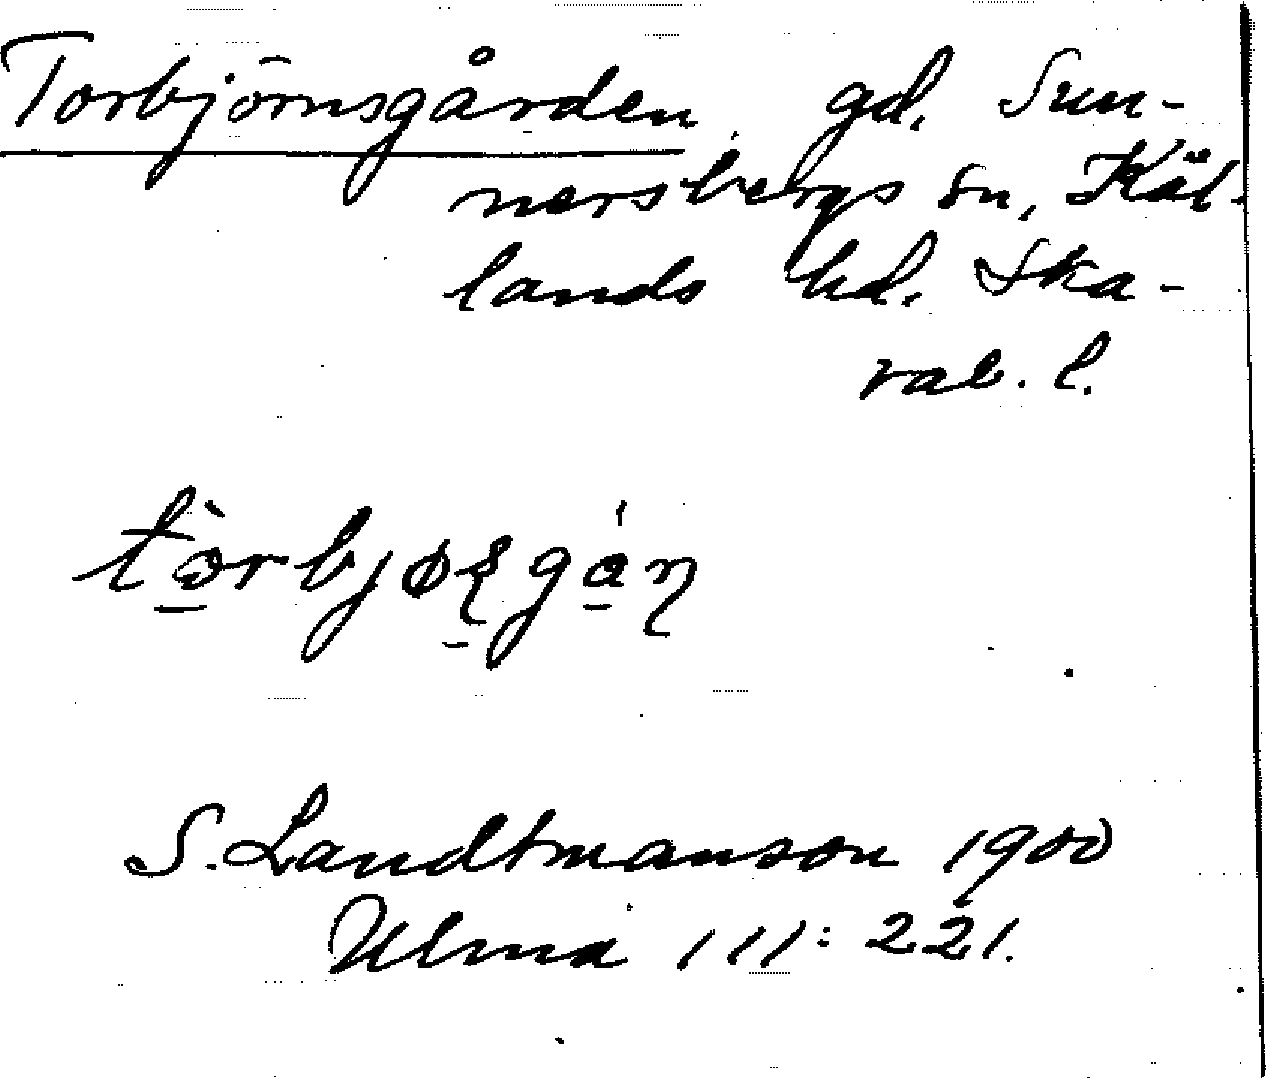 Torbjörnsgården gd. Sun-
nersbergs sn, Kål-
lands hd. Ska-
rab. l.
S. Landtmanson 1900
Ulma 111: 221.